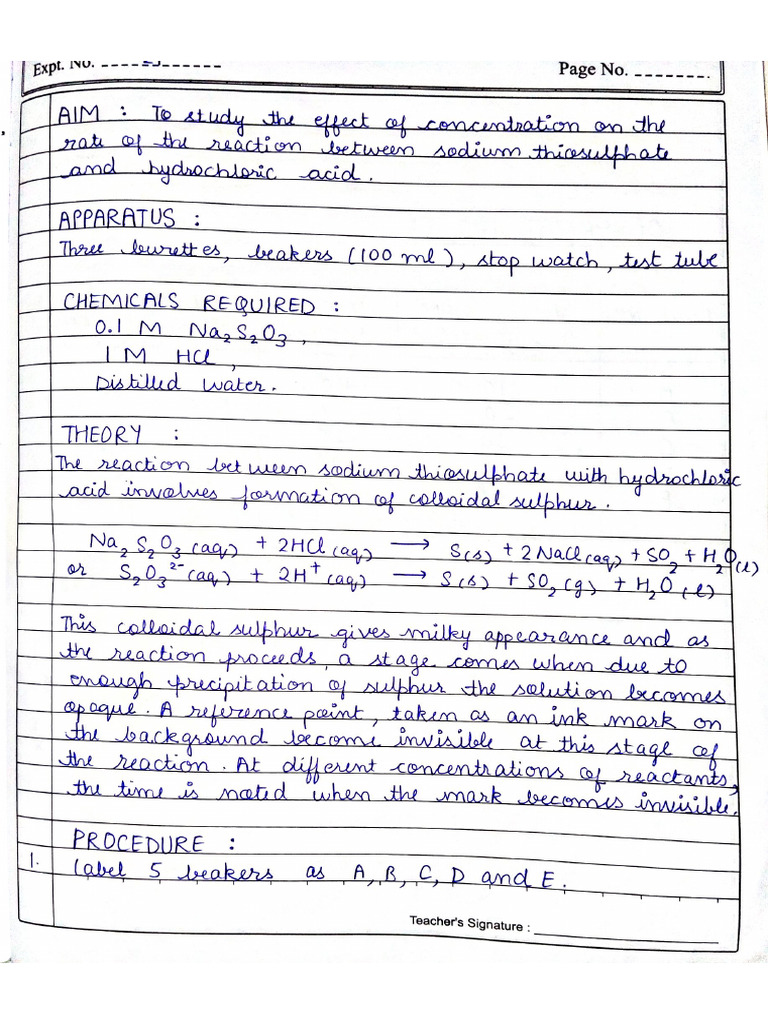 Expt. No. ----------
Page No. -------.
AIM : To study the effect of concentration on the
rate of the reaction between sodium thiosulphate
and hydrochloric acid.
APPARATUS :
Three burettes, beakers (100 ml), stop watch, test tube
CHEMICALS REQUIRED :
0.1 M Na₂S₂O₃,
1 M HCl,
Distilled water.
THEORY :
The reaction between sodium thiosulphate with hydrochloric
acid involves formation of colloidal sulphur.
Na₂S₂O₃(aq) + 2HCl(aq) → S(s) + 2NaCl(aq) + SO₂ + H₂O(l)
or S₂O₃²⁻(aq) + 2H⁺(aq) → S(s) + SO₂(g) + H₂O(l)
This colloidal sulphur gives milky appearance and as
the reaction proceeds, a stage comes when due to
enough precipitation of sulphur the solution becomes
opaque. A reference point, taken as an ink mark on
the background become invisible at this stage of
the reaction. At different concentrations of reactants,
the time is noted when the mark becomes invisible.
PROCEDURE :
1. Label 5 beakers as A, B, C, D and E.
Teacher's Signature : ____________